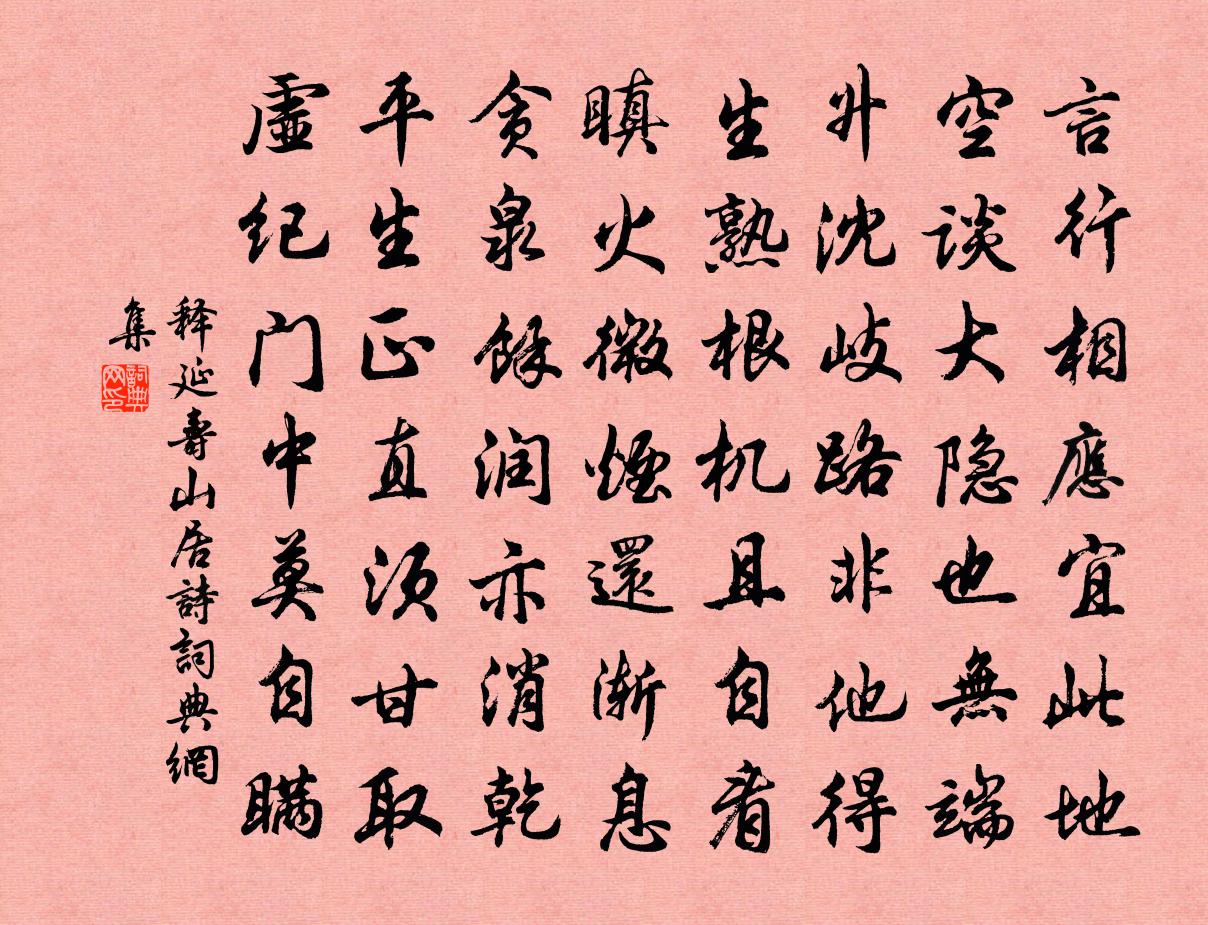 言行相應宜此地
空谈大隐也無端
升沈岐路非他得
生熟根机且自看
瞋火微煙還渐息
贪泉餘润亦消乾
平生正直须甘取
虛纪门中莫自瞒
释延壽山居詩詞典網
集
詞典
网印